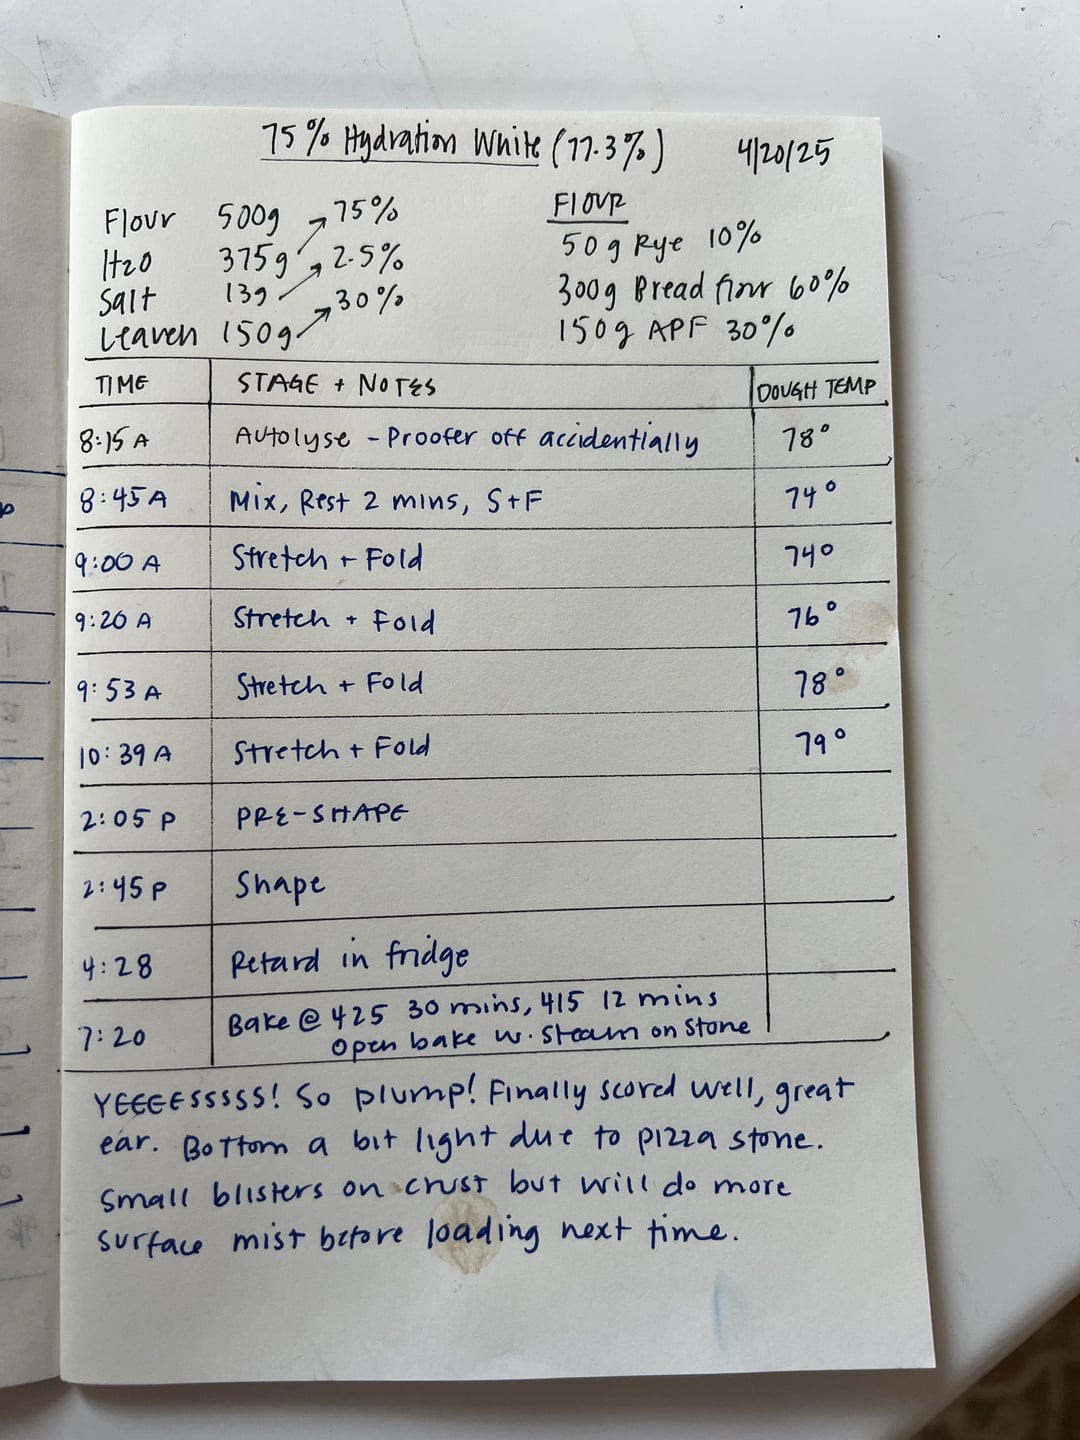 75% Hydration White (77.3%) 4/20/25
Flour 500g
H20 375g → 75%
Salt 13g → 2.5%
Leaven 150g → 30%
FlOUR
50g Rye 10%
300g Bread flour 60%
150g APF 30%
TIME STAGE + NOTES DOUGH TEMP
8:15 A Autolyse - Proofer off accidentially 78°
8:45 A Mix, Rest 2 mins, S+F 74°
9:00 A Stretch + Fold 74°
9:20 A Stretch + Fold 76°
9:53 A Stretch + Fold 78°
10:39 A Stretch + Fold 79°
2:05 P PRE-SHAPE
2:45 P Shape
4:28 Retard in fridge
7:20 Bake @ 425 30 mins, 415 12 mins
Open bake w. Steam on Stone
YEEEESSSSS! So plump! Finally scored well, great
ear. Bottom a bit light due to pizza stone.
Small blisters on crust but will do more
surface mist before loading next time.